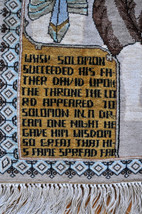 WHEN SOLOMON
SUCCEEDED HIS FA
THER DAVID UPON
THE THRONE THE LO
RD APPEARED TO
SOLOMON IN A DR
EAM ONE NIGHT HE
GAVE HIM WISDOM
SO GREAT THAT HI
S FAME SPREAD FAR